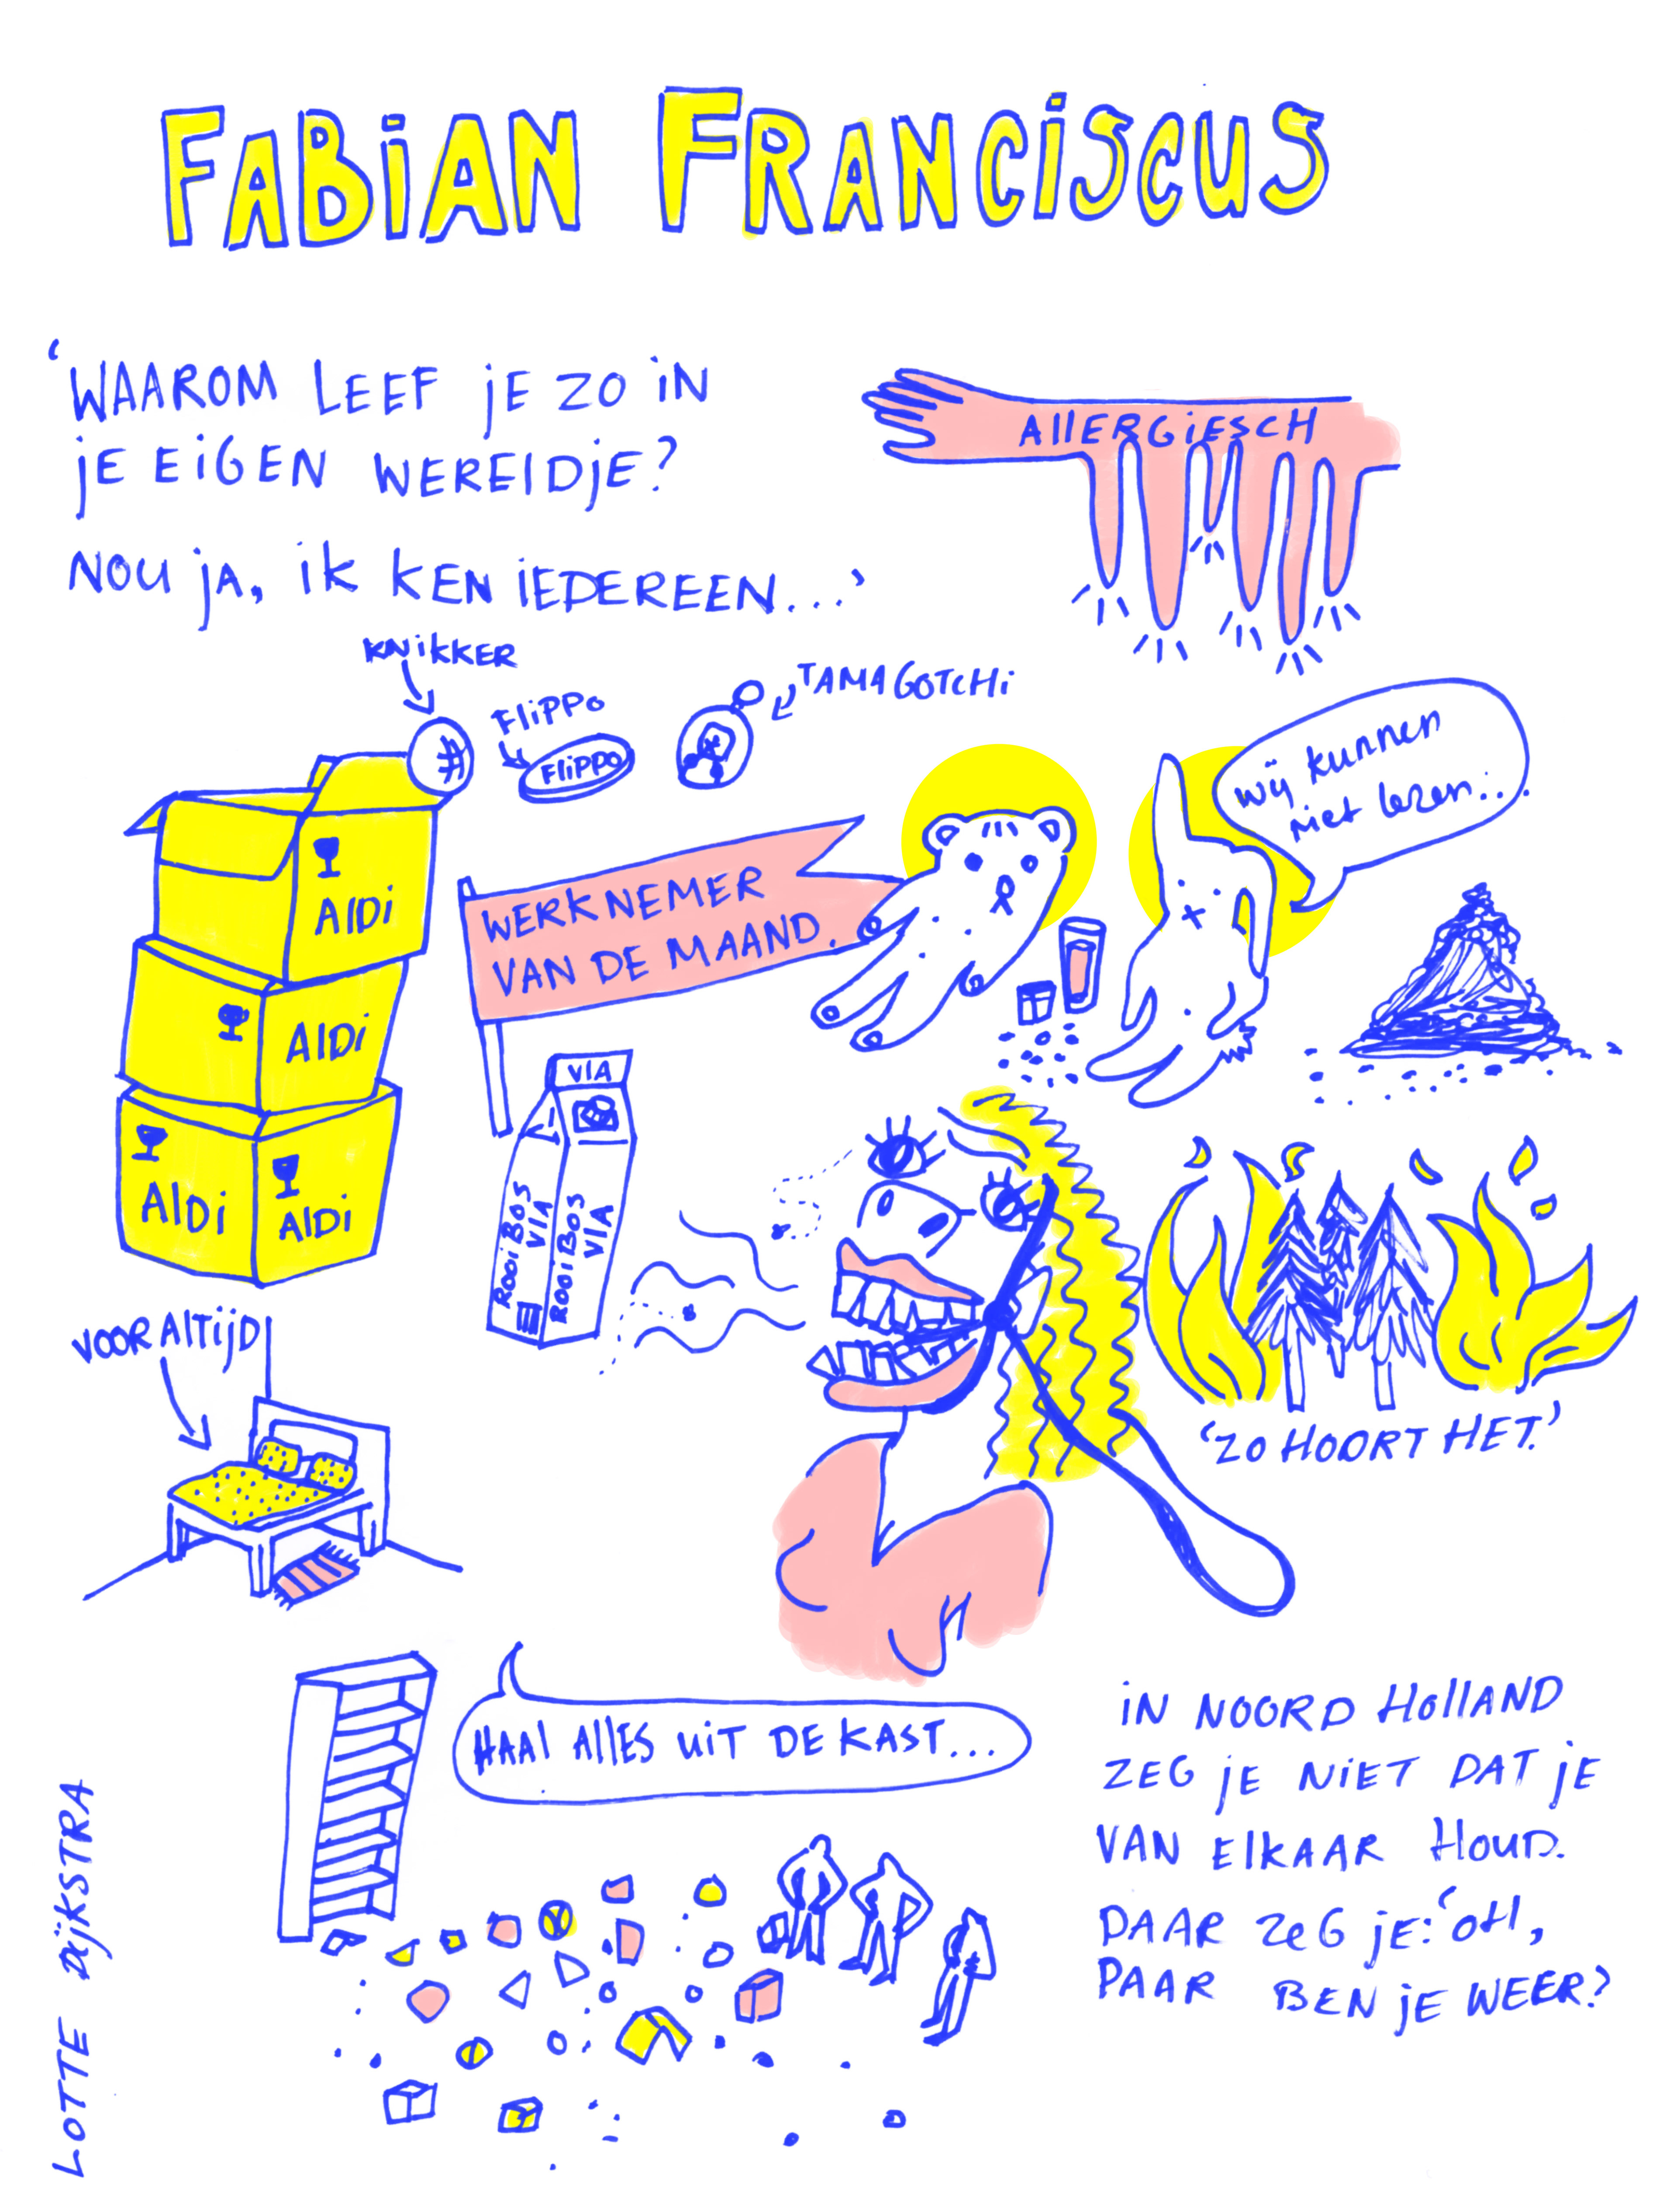 FABiAN FRANCiSCUS
'WAAROM LEEF jE ZO iN
jE EiGEN WERElDjE?
NOU jA, iK KEN iEDEREEN...'
AllERGiESCH
KNiKKER
FliPPO
FliPPO
TAMAGOTCHi
wij kunnen
niet lezen...
WERKNEMER
VAN DE MAAND.
AlDi
AlDi
AlDi
AlDi
VIA
ROOiBOS
VIA
ROOiBOS
VIA
VOORAlTijD
'ZO HOORT HET.'
HAAl AllES UiT DE KAST...
iN NOORD HOllAND
ZEG jE NiET DAT jE
VAN ElKAAR HOUD.
DAAR ZeG jE: 'OH,
DAAR BEN jE WEER?
LOTTE DijKSTRA